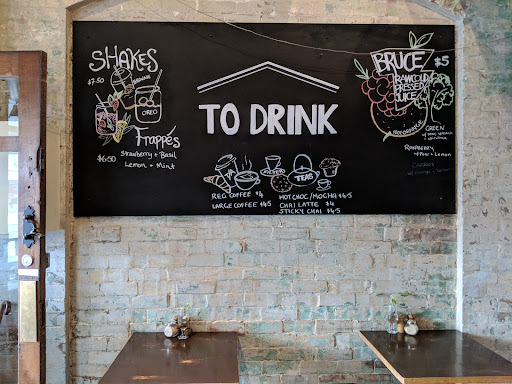 SHAKES
$7.50
BROWNIE
OREO
Frappés
$6.50
Strawberry + Basil
Lemon + Mint
TO DRINK
TEAS
REG COFFEE $4
LARGE COFFEE $4.5
HOT CHOC/MOCHA $4.5
CHAI LATTE $4
STICKY CHAI $4.5
BRUCE $5
RAW COLD
PRESSED
JUICE
ORANGE
GREEN
RASPBERRY
w/ Pear + Lemon